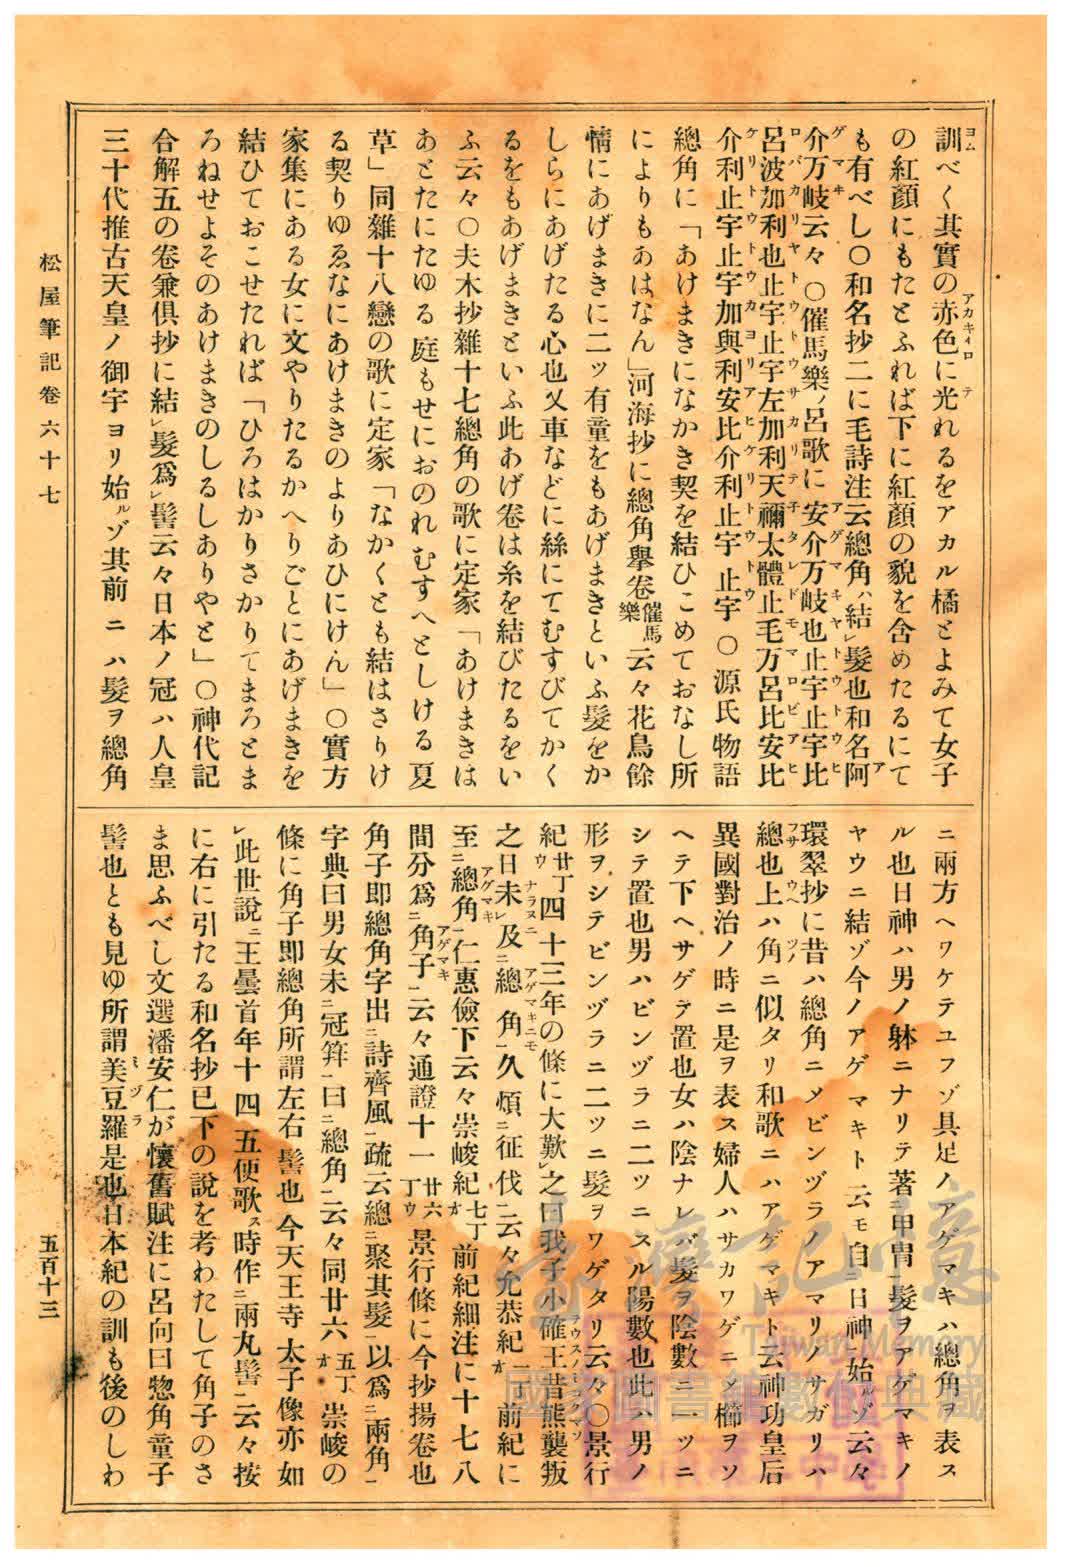 訓べく其實の赤色に光れるをアカル橘とよみて女子
の紅顏にもたとふれば下に紅顏の貌を含めたるにて
も有べし〇和名抄二に毛詩注云總角ハ結レ髮也和名阿
介万岐云々〇催馬樂ノ呂歌に安介万岐也止宇止宇比
呂波加利也止宇止宇左加利天禰太體止毛万呂比安比
介利止宇止宇加與利安比介利止宇止宇〇源氏物語
總角に「あけまきになかき契を結ひこめておなし所
によりもあはなん」河海抄に總角擧卷催馬樂云々花鳥餘
情にあげまきに二ッ有童をもあげまきといふ髮をか
しらにあげたる心也又車などに絲にてむすびてかく
るをもあげまきといふ此あげ卷は糸を結びたるをい
ふ云々〇夫木抄雜十七總角の歌に定家「あけまきは
あとたにたゆる庭もせにおのれむすへとしける夏
草」同雜十八戀の歌に定家「なかくとも結はさりけ
る契りゆゑなにあけまきのよりあひにけん」〇實方
家集にある女に文やりたるかへりごとにあげまきを
結ひておこせたれば「ひろはかりさかりてまろとま
ろねせよそのあけまきのしるしありやと」〇神代記
合解五の卷兼倶抄に結レ髮爲レ髻云々日本ノ冠ハ人皇
三十代推古天皇ノ御宇ヨリ始ルゾ其前ニハ髮ヲ總角
ニ兩方ヘワケテユフゾ具足ノアゲマキハ總角ヲ表ス
ル也日神ハ男ノ躰ニナリテ著ニ甲冑一髮ヲアゲマキノ
ヤウニ結ゾ今ノアゲマキト云モ自ニ日神一始ルゾ云々
環翠抄に昔ハ總角ニメビンヅラノアマリノサガリハ
總也上ハ角ニ似タリ和歌ニハアゲマキト云神功皇后
異國對治ノ時ニ是ヲ表ス婦人ハサカワゲニメ櫛ヲソ
ヘラ下ヘサゲテ置也女ハ陰ナレバ髮ヲ陰數ニ一ツニ
シテ置也男ハビンヅラニ二ツニスル陽數也此ハ男ノ
形ヲシテビンヅラニ二ツニ髮ヲワゲタリ云々〇景行
紀廿丁ウ四十三年の條に大歎レ之曰我子小碓王昔熊襲叛
之日未レ及ニ總角一久煩ニ征伐一云々允恭紀一丁オ前紀に
至ニ總角一仁惠儉下云々崇峻紀七丁オ前紀細注に十七八
間分爲ニ角子一云々通證十一廿六丁ウ景行條に今抄揚卷也
角子即總角字出ニ詩齊風一疏云總ニ聚其髮一以爲ニ兩角一
字典曰男女未ニ冠笄一曰ニ總角一云々同廿六五丁オ崇峻の
條に角子即總角所謂左右髻也今天王寺太子像亦如
レ此世說ニ王曇首年十四五便歌ス時作ニ兩丸髻一云々按
に右に引たる和名抄已下の說を考わたして角子のさ
ま思ふべし文選潘安仁が懷舊賦注に呂向曰惣角童子
髻也とも見ゆ所謂美豆羅是也日本紀の訓も後のしわ
松屋筆記卷六十七
五百十三
臺灣記憶
Taiwan Memory
國家圖書館數位典藏